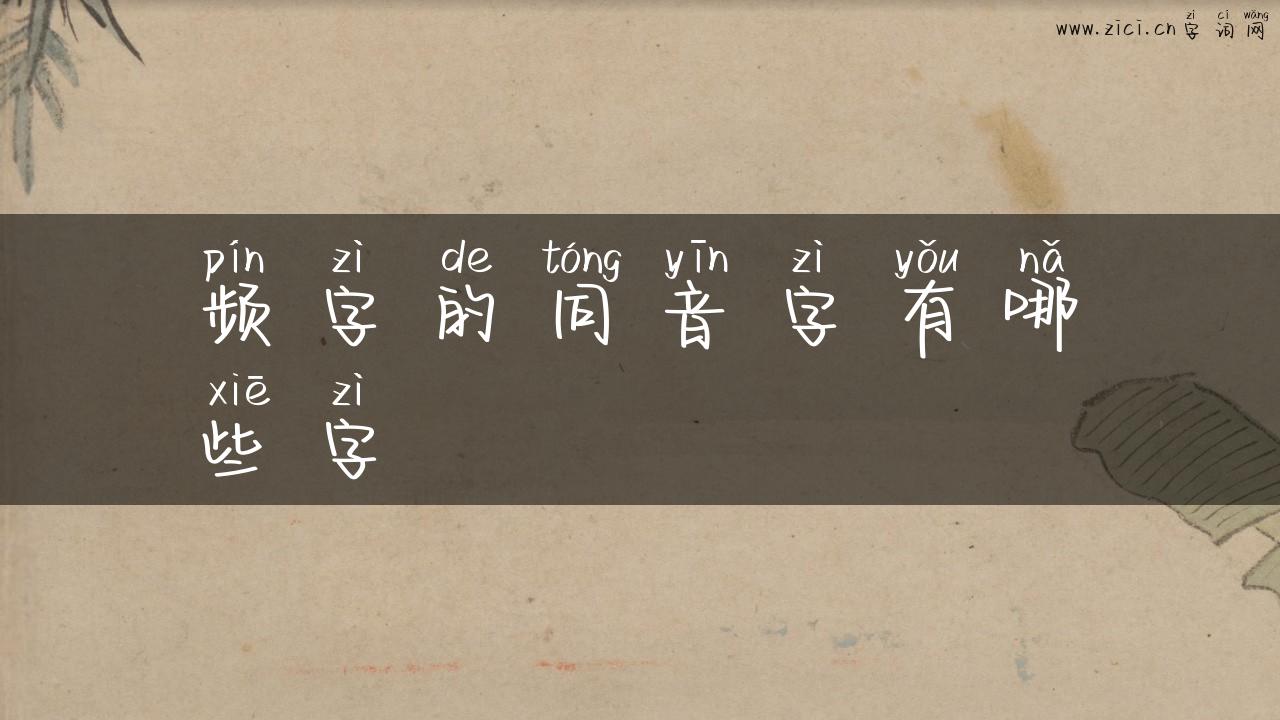 zì cí wǎng
www.zici.cn 字词网
pín zì de tóng yīn zì yǒu nǎ
频字的同音字有哪
xiē zì
些字